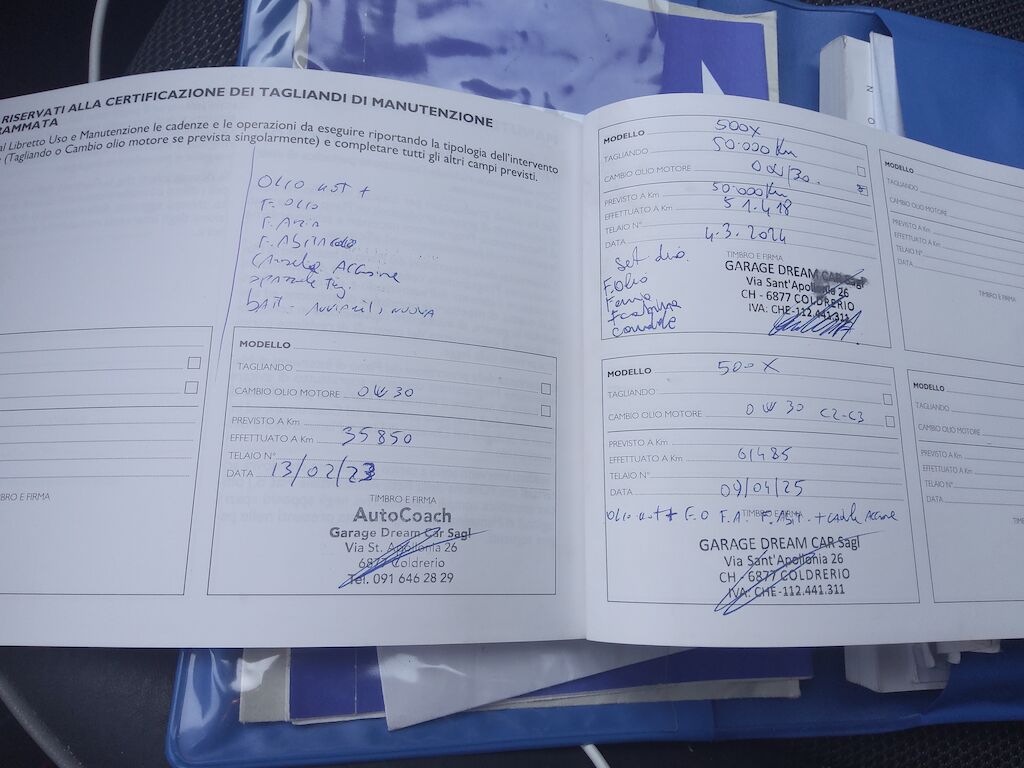 RISERVATI ALLA CERTIFICAZIONE DEI TAGLIANDI DI MANUTENZIONE
RAMMATA
al Libretto Uso e Manutenzione le cadenze e le operazioni da eseguire riportando la tipologia dell'intervento
e (Tagliando o Cambio olio motore se prevista singolarmente) e completare tutti gli altri campi previsti.
OLIO
F. OLIO
F. ARIA
F. ABITACOLO
BRO E FIRMA
MODELLO
TAGLIANDO
CAMBIO OLIO MOTORE 0W30
PREVISTO A Km
EFFETTUATO A Km 35850
TELAIO N°
DATA 13/02/23
TIMBRO E FIRMA
AutoCoach
Garage Dream Car Sagl
Via St. Apollonia 26
6877 Coldrerio
Tel. 091 646 28 29
MODELLO 500X
TAGLIANDO 50.000 Km
CAMBIO OLIO MOTORE 0W/30.
PREVISTO A Km 50.000 Km
EFFETTUATO A Km 51.418
TELAIO N°
DATA 4.3.2024
TIMBRO E FIRMA
F. Olio
GARAGE DREAM CAR Sagl
Via Sant'Apollonia 26
CH - 6877 COLDRERIO
IVA: CHE-112.441.311
MODELLO 500X
TAGLIANDO
CAMBIO OLIO MOTORE 0W30 C2-C3
PREVISTO A Km
EFFETTUATO A Km 61485
TELAIO N°
DATA 09/04/25
TIMBRO E FIRMA
F.O F.A. F. ABIT.
GARAGE DREAM CAR Sagl
Via Sant'Apollonia 26
CH - 6877 COLDRERIO
IVA: CHE-112.441.311
MODELLO
TAGLIANDO
CAMBIO OLIO MOTORE
PREVISTO A Km
EFFETTUATO A Km
TELAIO N°
DATA
TIMBRO E FIRMA
MODELLO
TAGLIANDO
CAMBIO OLIO MOTORE
PREVISTO A Km
EFFETTUATO A Km
TELAIO N°
DATA